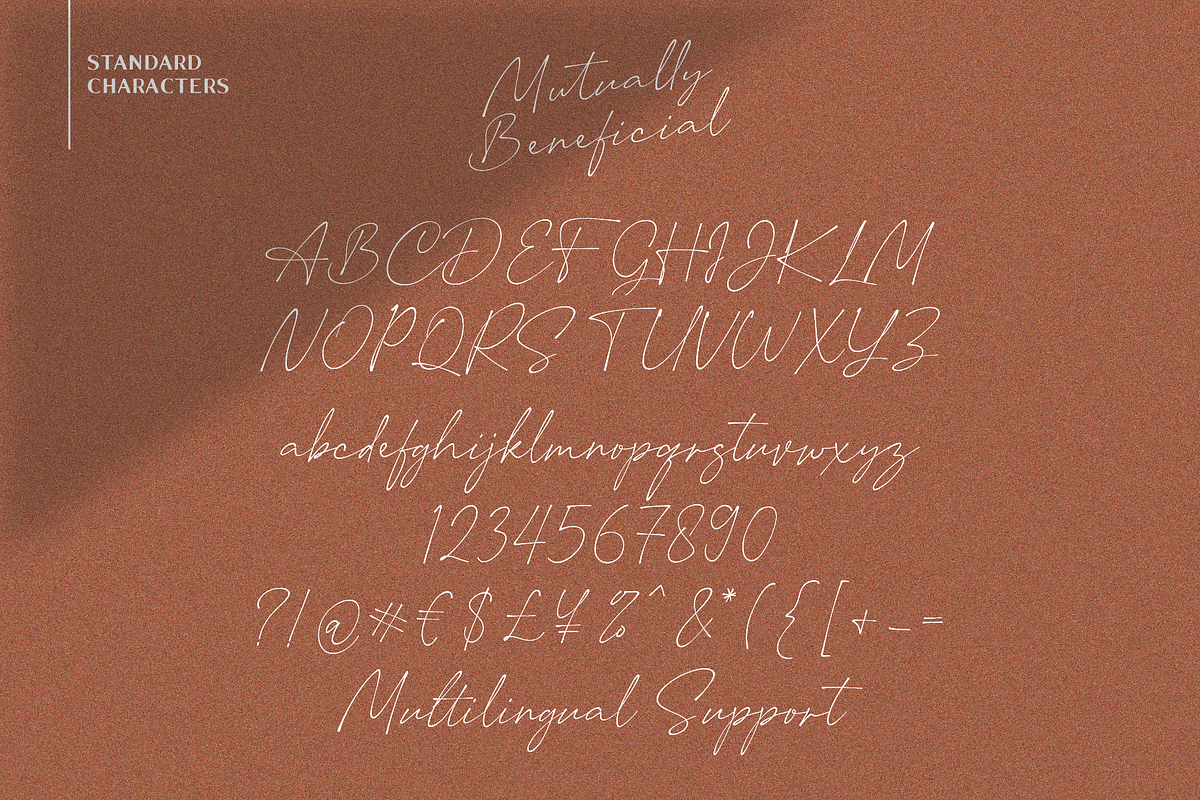 STANDARD
CHARACTERS
Mutually
Beneficial
ABCDEFGHIJKLM
NOPQRSTUVWXYZ
abcdefghijklmnopqrstuvwxyz
1234567890
?!@#€$£¥%^&*({[+_=
Multilingual Support